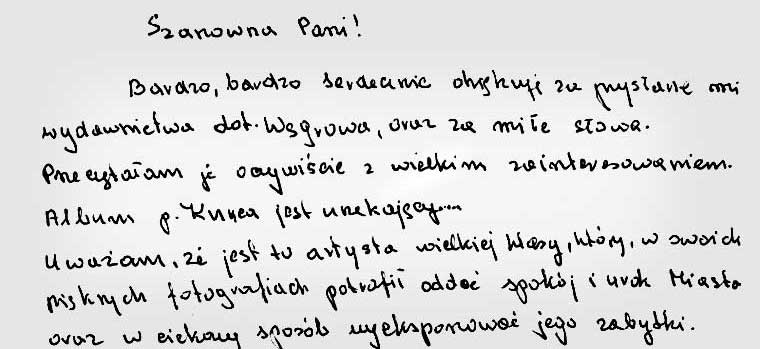 Szanowna Pani!
Bardzo, bardzo serdecznie dziękuję za przysłane mi
wydawnictwa dot. Węgrowa, oraz za miłe słowa.
Przeczytałam je oczywiście z wielkim zainteresowaniem.
Album p. jest urzekający...
Uważam, że jest to artysta wielkiej klasy, który, w swoich
pięknych fotografiach potrafił oddać spokój i urok Miasta
oraz w ciekawy sposób wyeksponować jego zabytki.